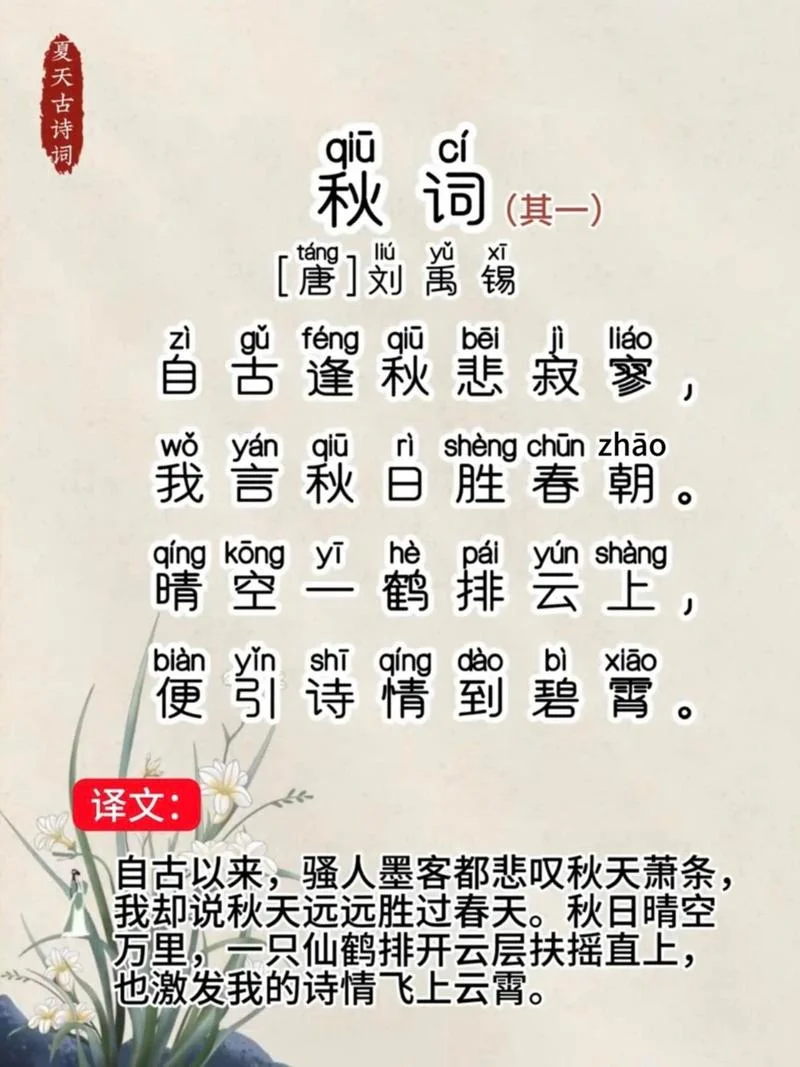 夏天古诗词
qiū cí
秋词(其一)
táng liú yǔ xī
[唐]刘禹锡
zì gǔ féng qiū bēi jì liáo
自古逢秋悲寂寥，
wǒ yán qiū rì shèng chūn zhāo
我言秋日胜春朝。
qíng kōng yī hè pái yún shàng
晴空一鹤排云上，
biàn yǐn shī qíng dào bì xiāo
便引诗情到碧霄。
译文：
自古以来，骚人墨客都悲叹秋天萧条，
我却说秋天远远胜过春天。秋日晴空
万里，一只仙鹤排开云层扶摇直上，
也激发我的诗情飞上云霄。